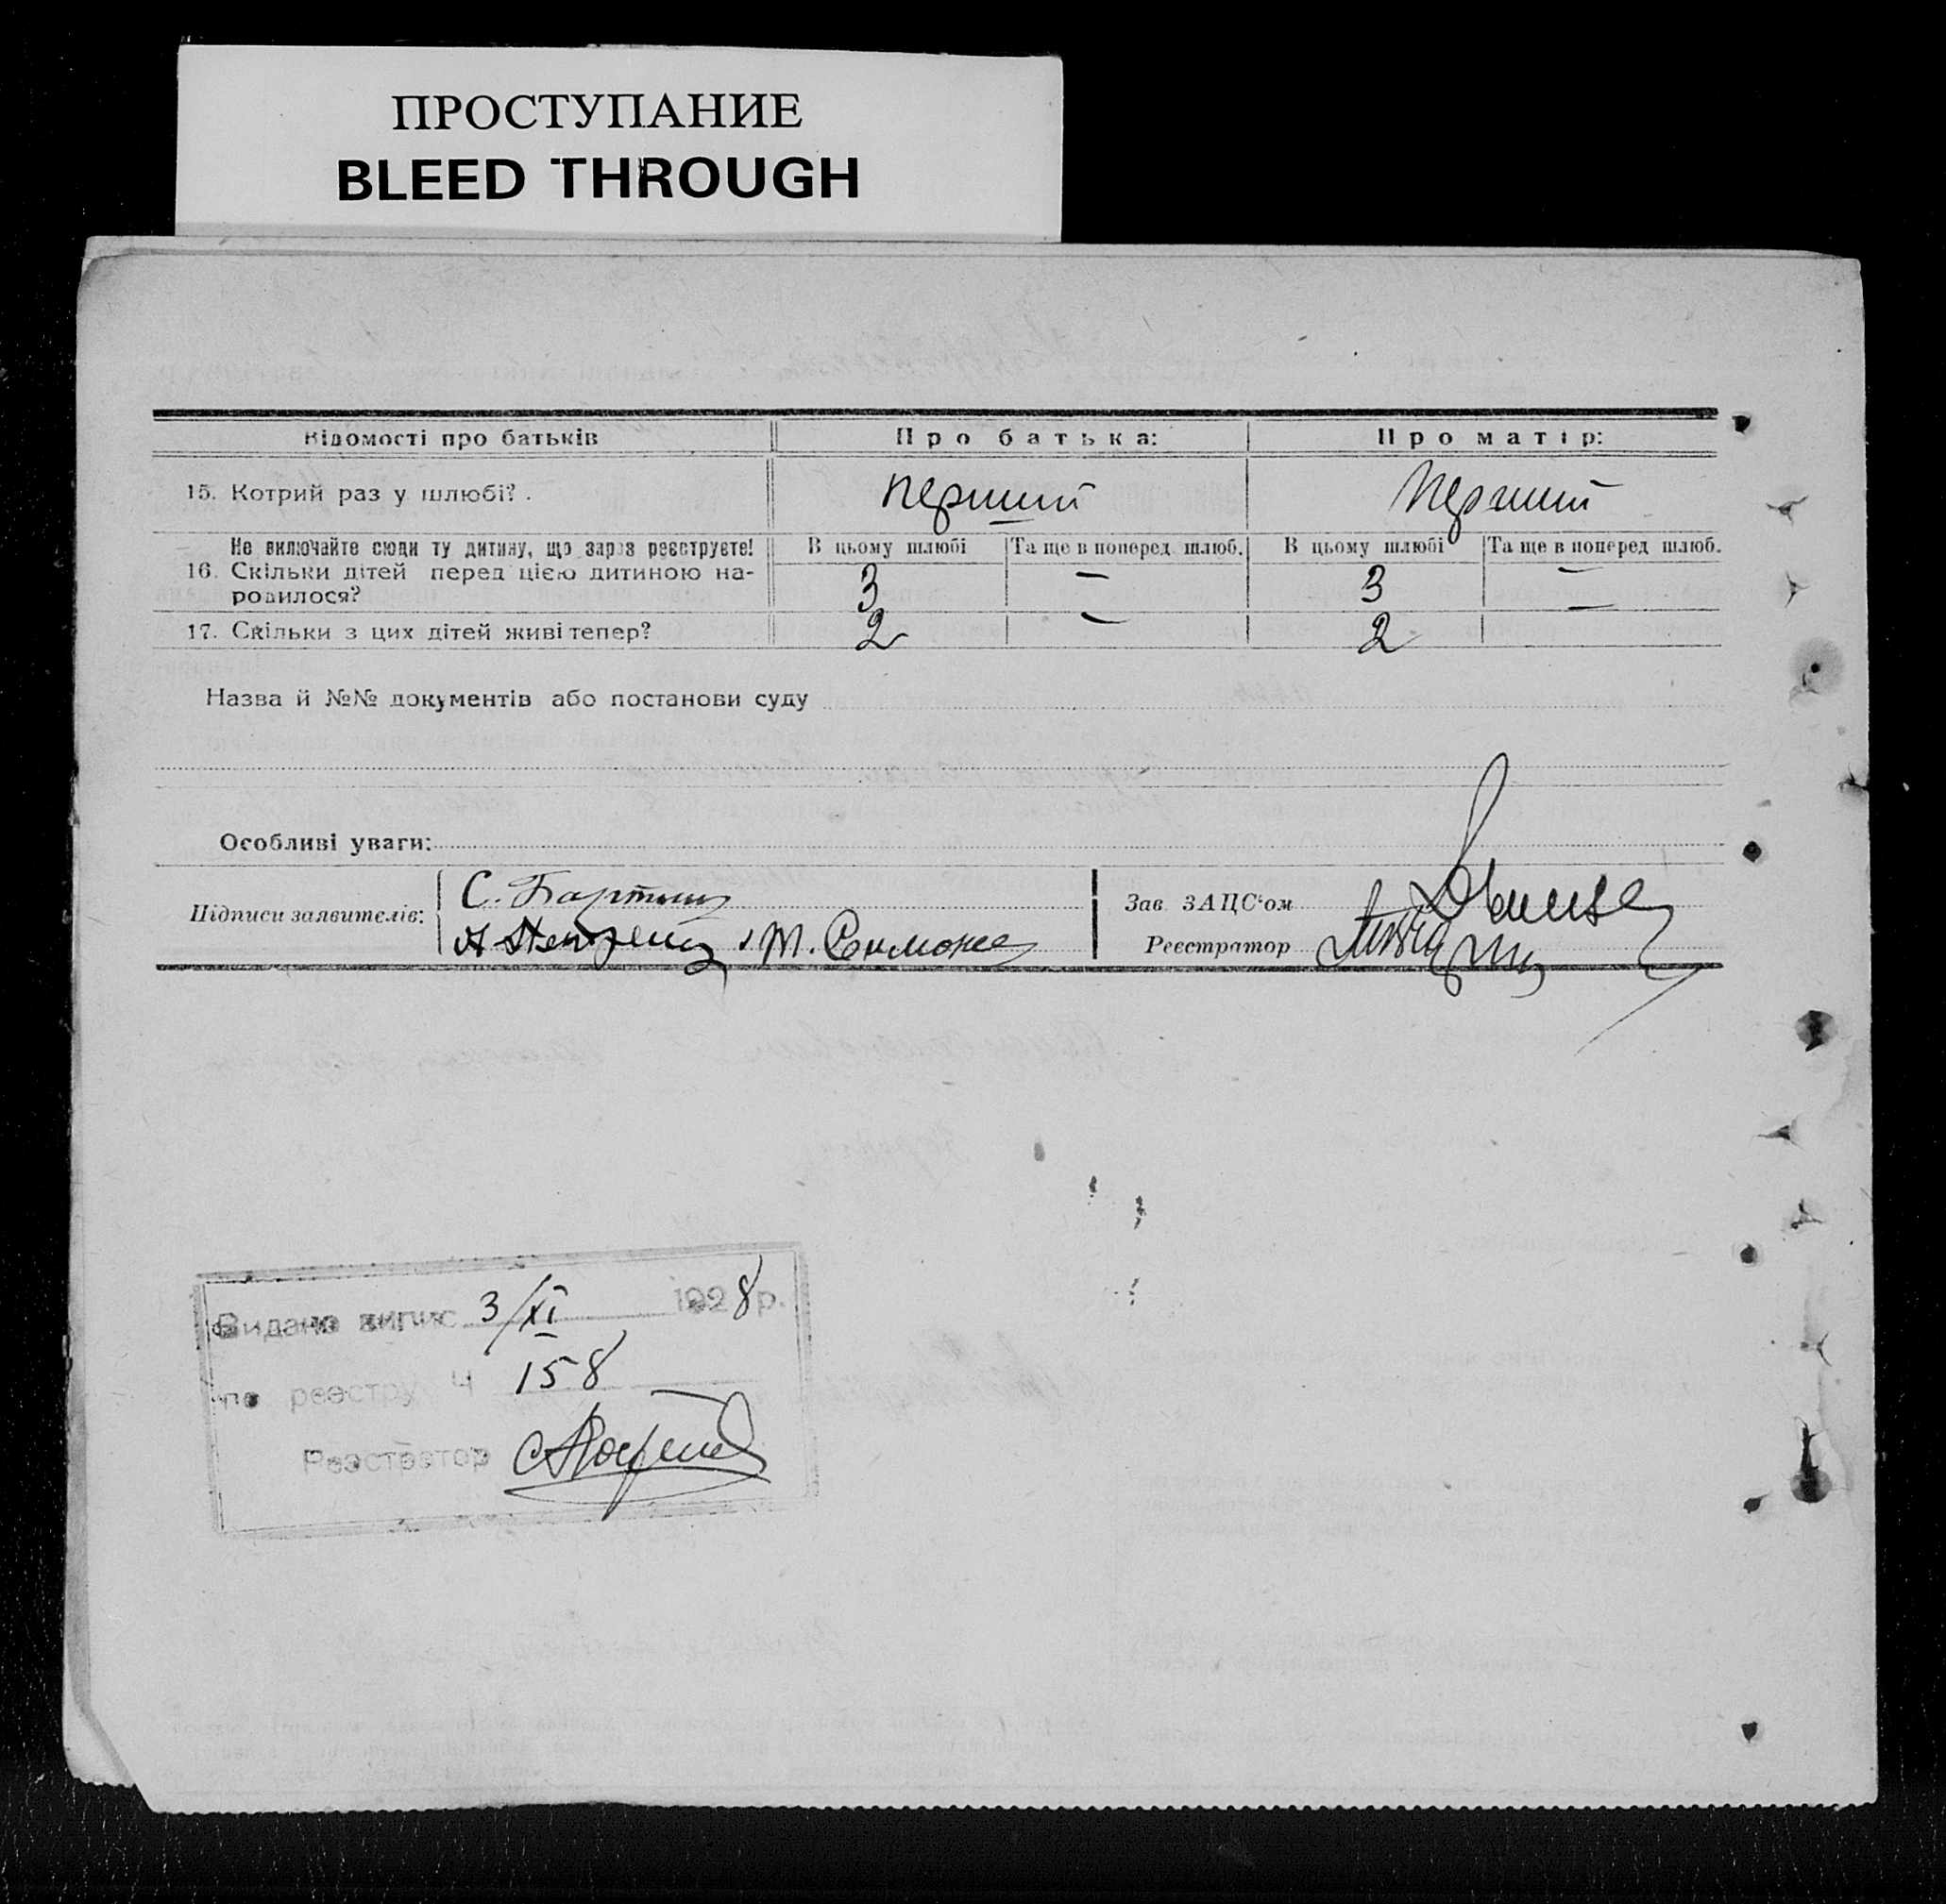 ПРОСТУПАНИЕ
BLEED THROUGH
Відомості про батьків Про батька: Про матір:
15. Котрий раз у шлюбі? . перший перший
Не включайте сюди ту дитину, що зараз реєструєте! В цьому шлюбі Та ще в поперед. шлюб. В цьому шлюбі Та ще в поперед шлюб.
16. Скільки дітей перед цією дитиною на- 3 — 3 —
родилося?
17. Скільки з цих дітей живі тепер? 2 — 2 —
Назва й №№ документів або постанови суду
Особливі уваги:
Підписи заявителів: С.
Зав. ЗАЦС'ом
Реєстратор
Видано випис 3/XI 1928 р.
по реєстру Ч 158
Реєстратор